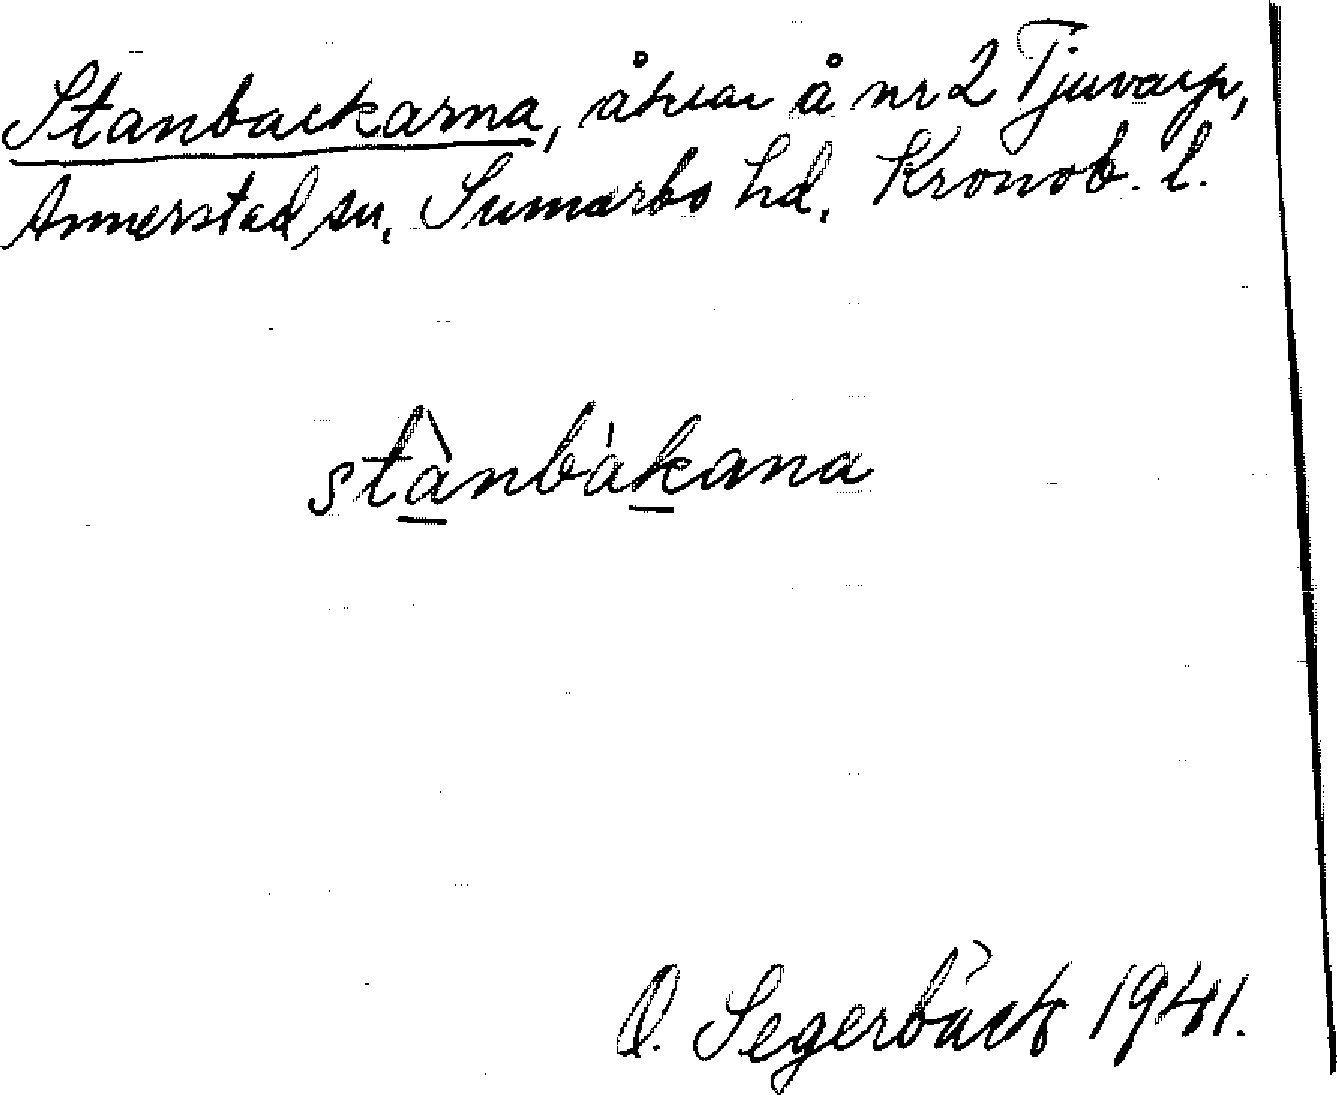 Stanbackarna, åkrar å nr 2 Tjuvarp,
Annerstad sn, Sunnerbo hd, Kronob. l.
stànbàkana
O. Segerbäck 1941.